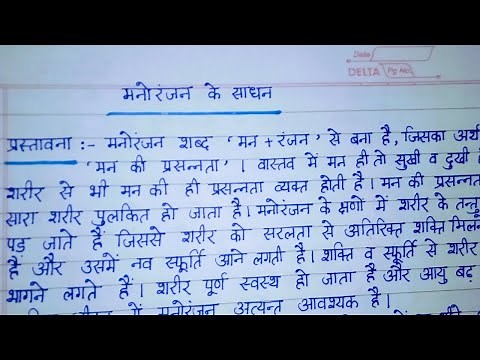 Date
DELTA Pg No.
मनोरंजन के साधन
प्रस्तावना :- मनोरंजन शब्द 'मन + रंजन' से बना है, जिसका अर्थ
'मन की प्रसन्नता' । वास्तव में मन ही तो सुखी व दुखी
शरीर से भी मन की ही प्रसन्नता व्यक्त होती है। मन की प्रसन्नत
सारा शरीर पुलकित हो जाता है। मनोरंजन के क्षणो में शरीर के तन्तु
पड़ जाते हैं जिससे शरीर को सरलता से अतिरिक्त शक्ति मिलन
हैं और उसमें नव स्फूर्ति आने लगती है। शक्ति व स्फूर्ति से शरीर
भागने लगते हैं। शरीर पूर्ण स्वस्थ हो जाता है और आयु बढ़
में मनोरंजन अत्यन्त आवश्यक है।